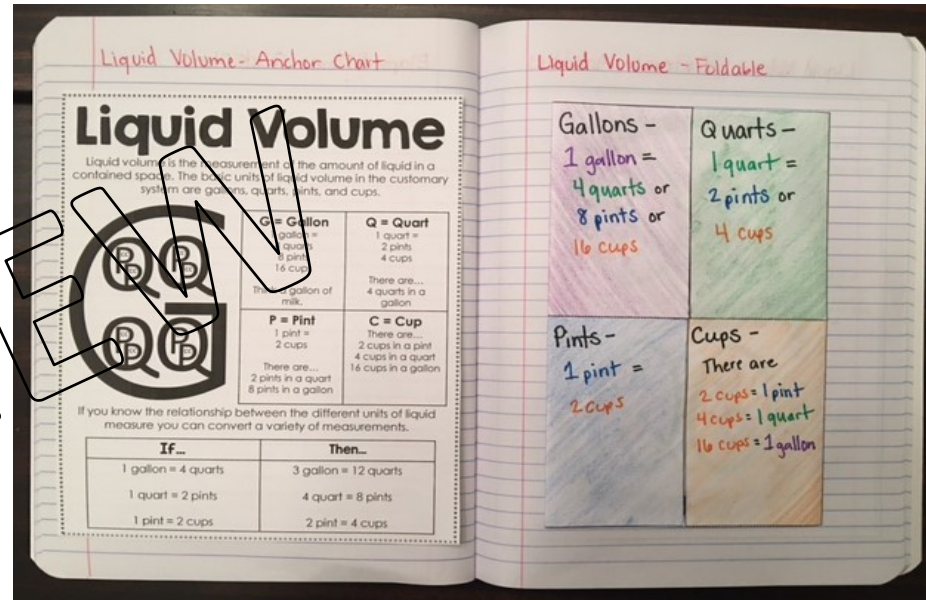 Liquid Volume - Anchor Chart
Liquid Volume
Liquid volume is the measurement of the amount of liquid in a
contained space. The basic units of liquid volume in the customary
system are gallons, quarts, pints, and cups.
G = Gallon
gallon =
quarts
8 pints
16 cups
Think a gallon of
milk.
Q = Quart
1 quart =
2 pints
4 cups
There are...
4 quarts in a
gallon
P = Pint
1 pint =
2 cups
There are...
2 pints in a quart
8 pints in a gallon
C = Cup
There are...
2 cups in a pint
4 cups in a quart
16 cups in a gallon
If you know the relationship between the different units of liquid
measure you can convert a variety of measurements.
If... Then...
1 gallon = 4 quarts 3 gallon = 12 quarts
1 quart = 2 pints 4 quart = 8 pints
1 pint = 2 cups 2 pint = 4 cups
Liquid Volume - Foldable
Gallons -
1 gallon =
4 quarts or
8 pints or
16 cups
Quarts -
1 quart =
2 pints or
4 cups
Pints -
1 pint =
2 cups
Cups -
There are
2 cups = 1 pint
4 cups = 1 quart
16 cups = 1 gallon
EW